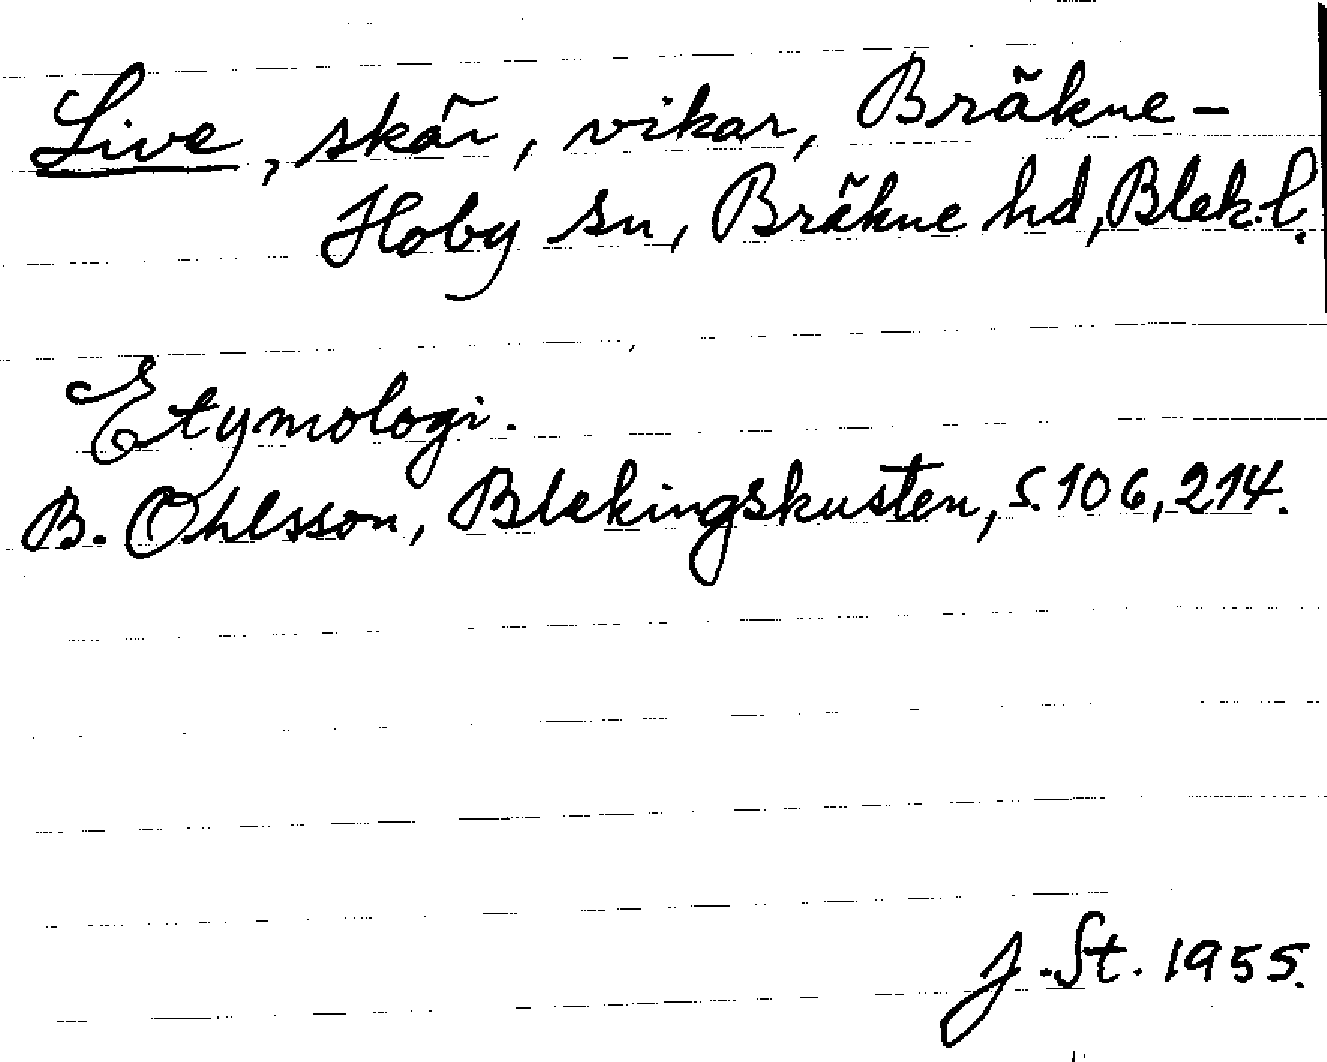 Live, skär, vikar, Bräkne-
Hoby sn, Bräkne hd, Blek.l.
Etymologi.
B. Ohlsson, Blekingskusten, s. 106, 214.
J. St. 1955.